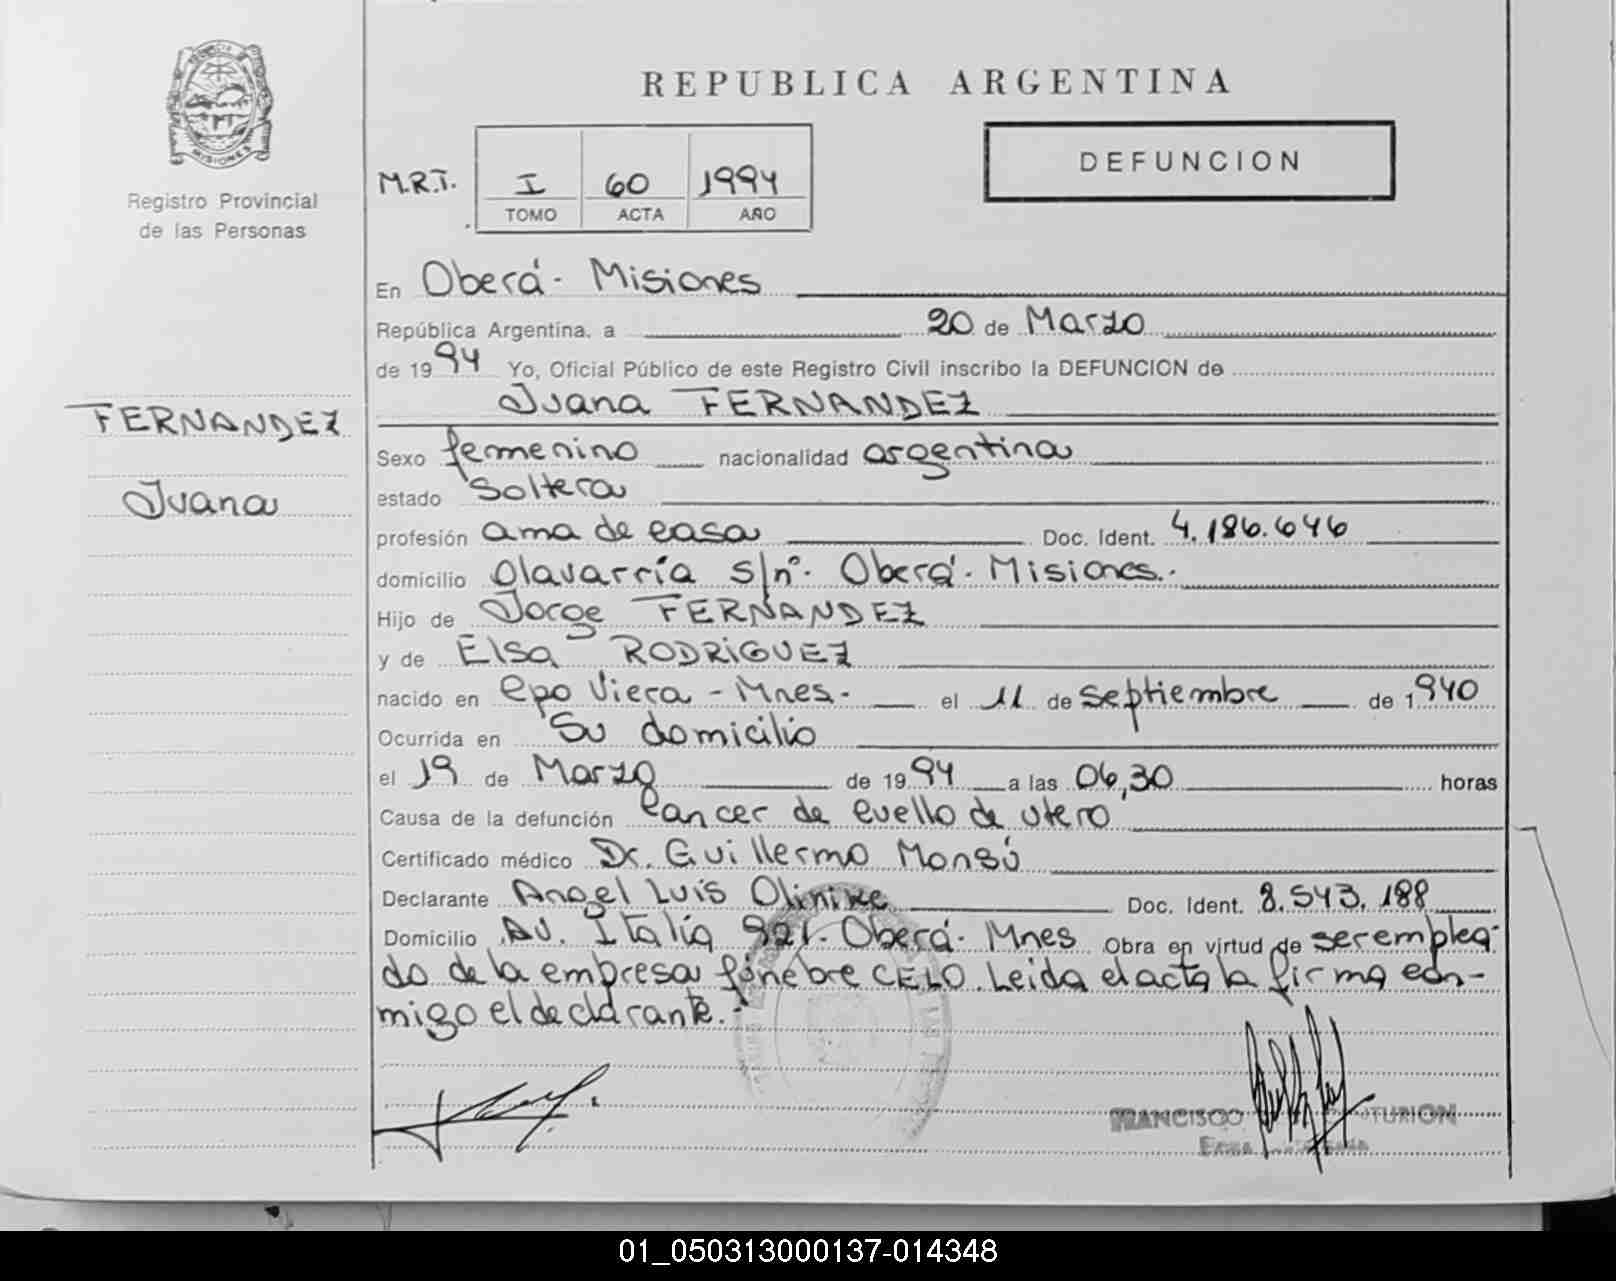 MISIONES
Registro Provincial
de las Personas
FERNANDEZ
Juana
REPUBLICA ARGENTINA
DEFUNCION
M.R.T. I 60 1994
TOMO ACTA AÑO
En Oberá - Misiones
República Argentina, a 20 de Marzo
de 1994 Yo, Oficial Público de este Registro Civil inscribo la DEFUNCION de
Juana FERNANDEZ
Sexo femenino nacionalidad argentina
estado Soltera
profesión ama de casa Doc. Ident. 4.186.646
domicilio Olavarría s/nº. Oberá. Misiones.-
Hijo de Jorge FERNANDEZ
y de Elsa RODRIGUEZ
nacido en Cpo Viera - Mnes. el 11 de septiembre de 1940
Ocurrida en Su domicilio
el 19 de Marzo de 1994 a las 06,30 horas
Causa de la defunción Cancer de cuello de utero
Certificado médico Dr. Guillermo Monsú
Declarante Angel Luis Doc. Ident. 8.543.188
Domicilio Av. Italia 921. Oberá. Mnes Obra en virtud de ser emplea-
do de la empresa fúnebre CELO. Leida el acta la firma con-
migo el declarante.-
FRANCISCO
01_050313000137-014348